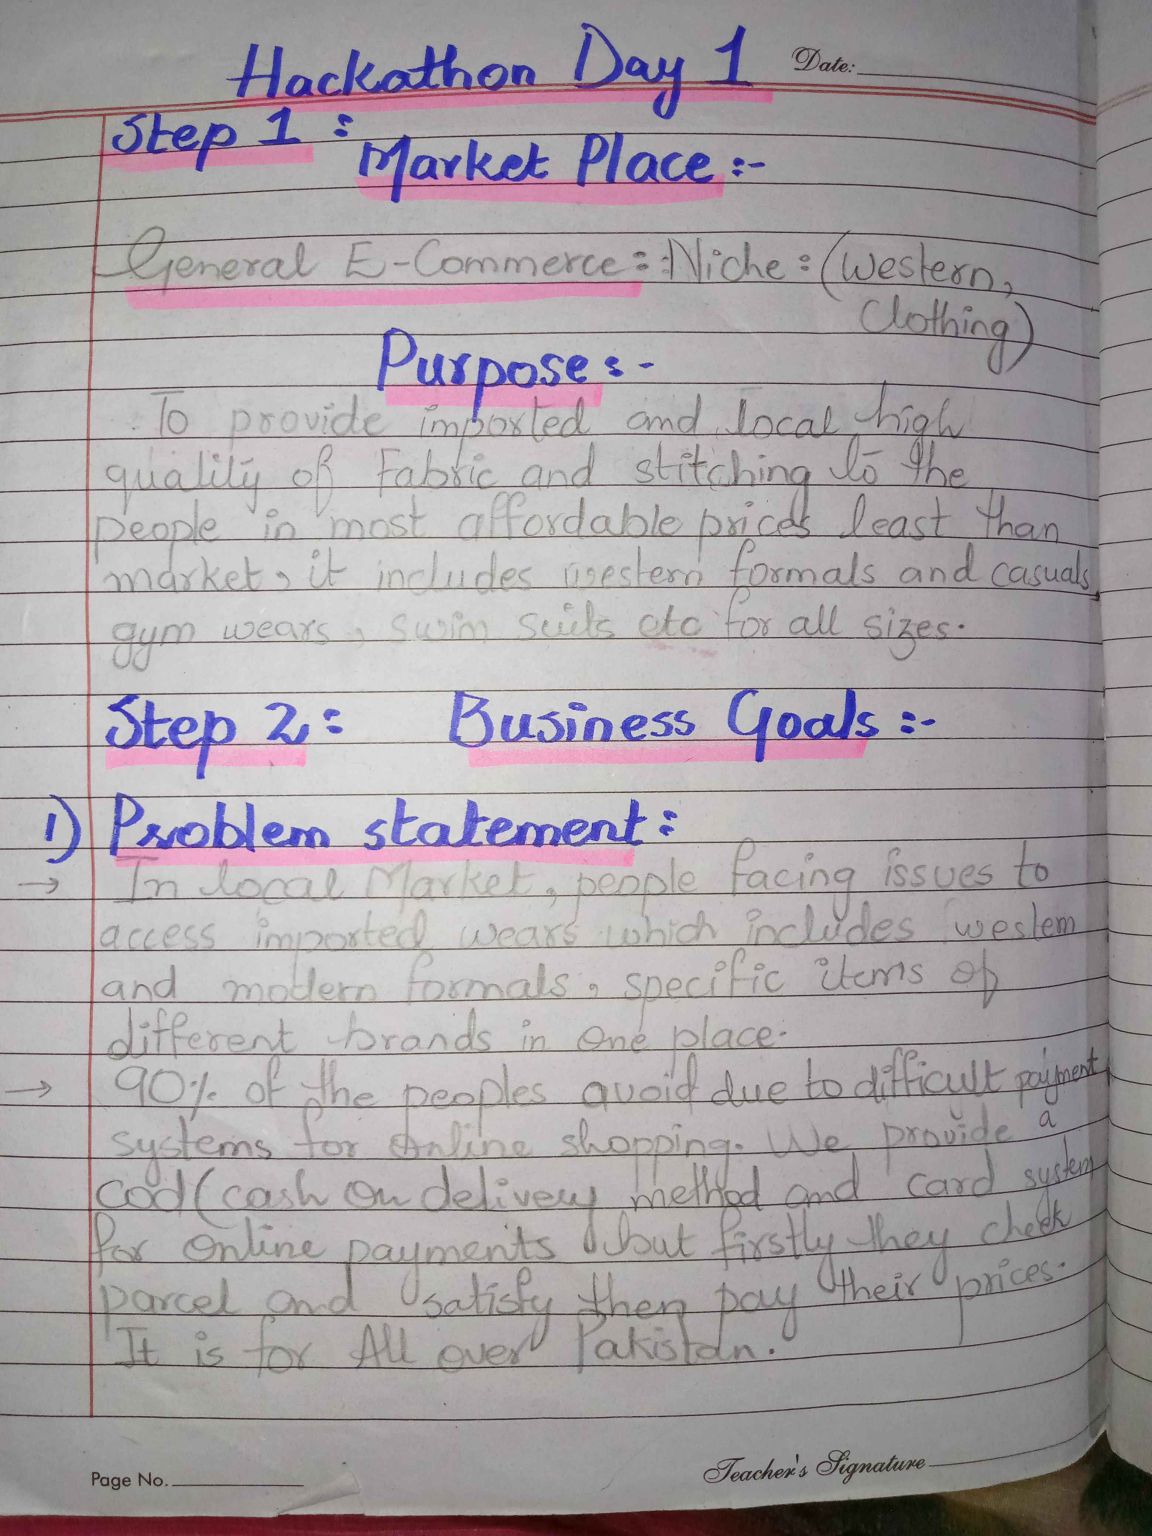 Hackathon Day 1 Date:
Step 1 :
Market Place :-
General E-Commerce :- Niche : (Western,
Clothing)
Purpose :-
To provide imported and local high
quality of Fabric and stitching to the
people in most affordable prices least than
market, it includes western formals and casuals,
gym wears, swim suits etc for all sizes.
Step 2 : Business Goals :-
1) Problem statement :
→ In local Market, people facing issues to
access imported wears which includes western
and modern formals, specific items of
different brands in one place.
→ 90% of the peoples avoid due to difficult payment
systems for online shopping. We provide a
cod (cash on delivery method and card system
for online payments but firstly they check
parcel and satisfy then pay their prices.
It is for All over Pakistan.
Page No. Teacher's Signature